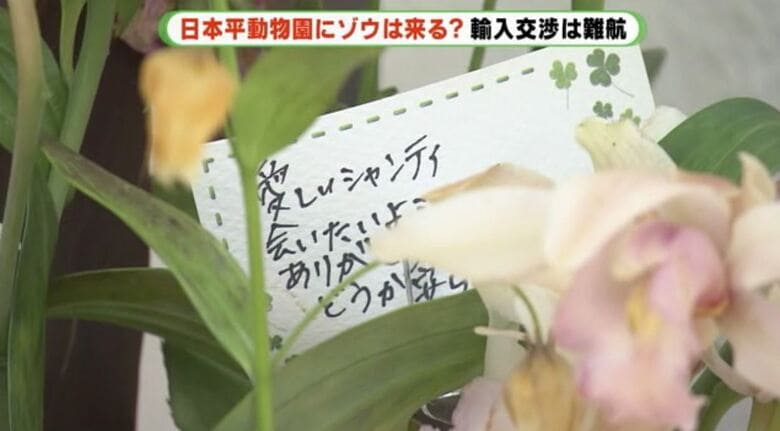 日本平動物園にゾウは来る? 輸入交渉は難航
愛しいシャンティ
会いたいよ
ありが
どうか安ら